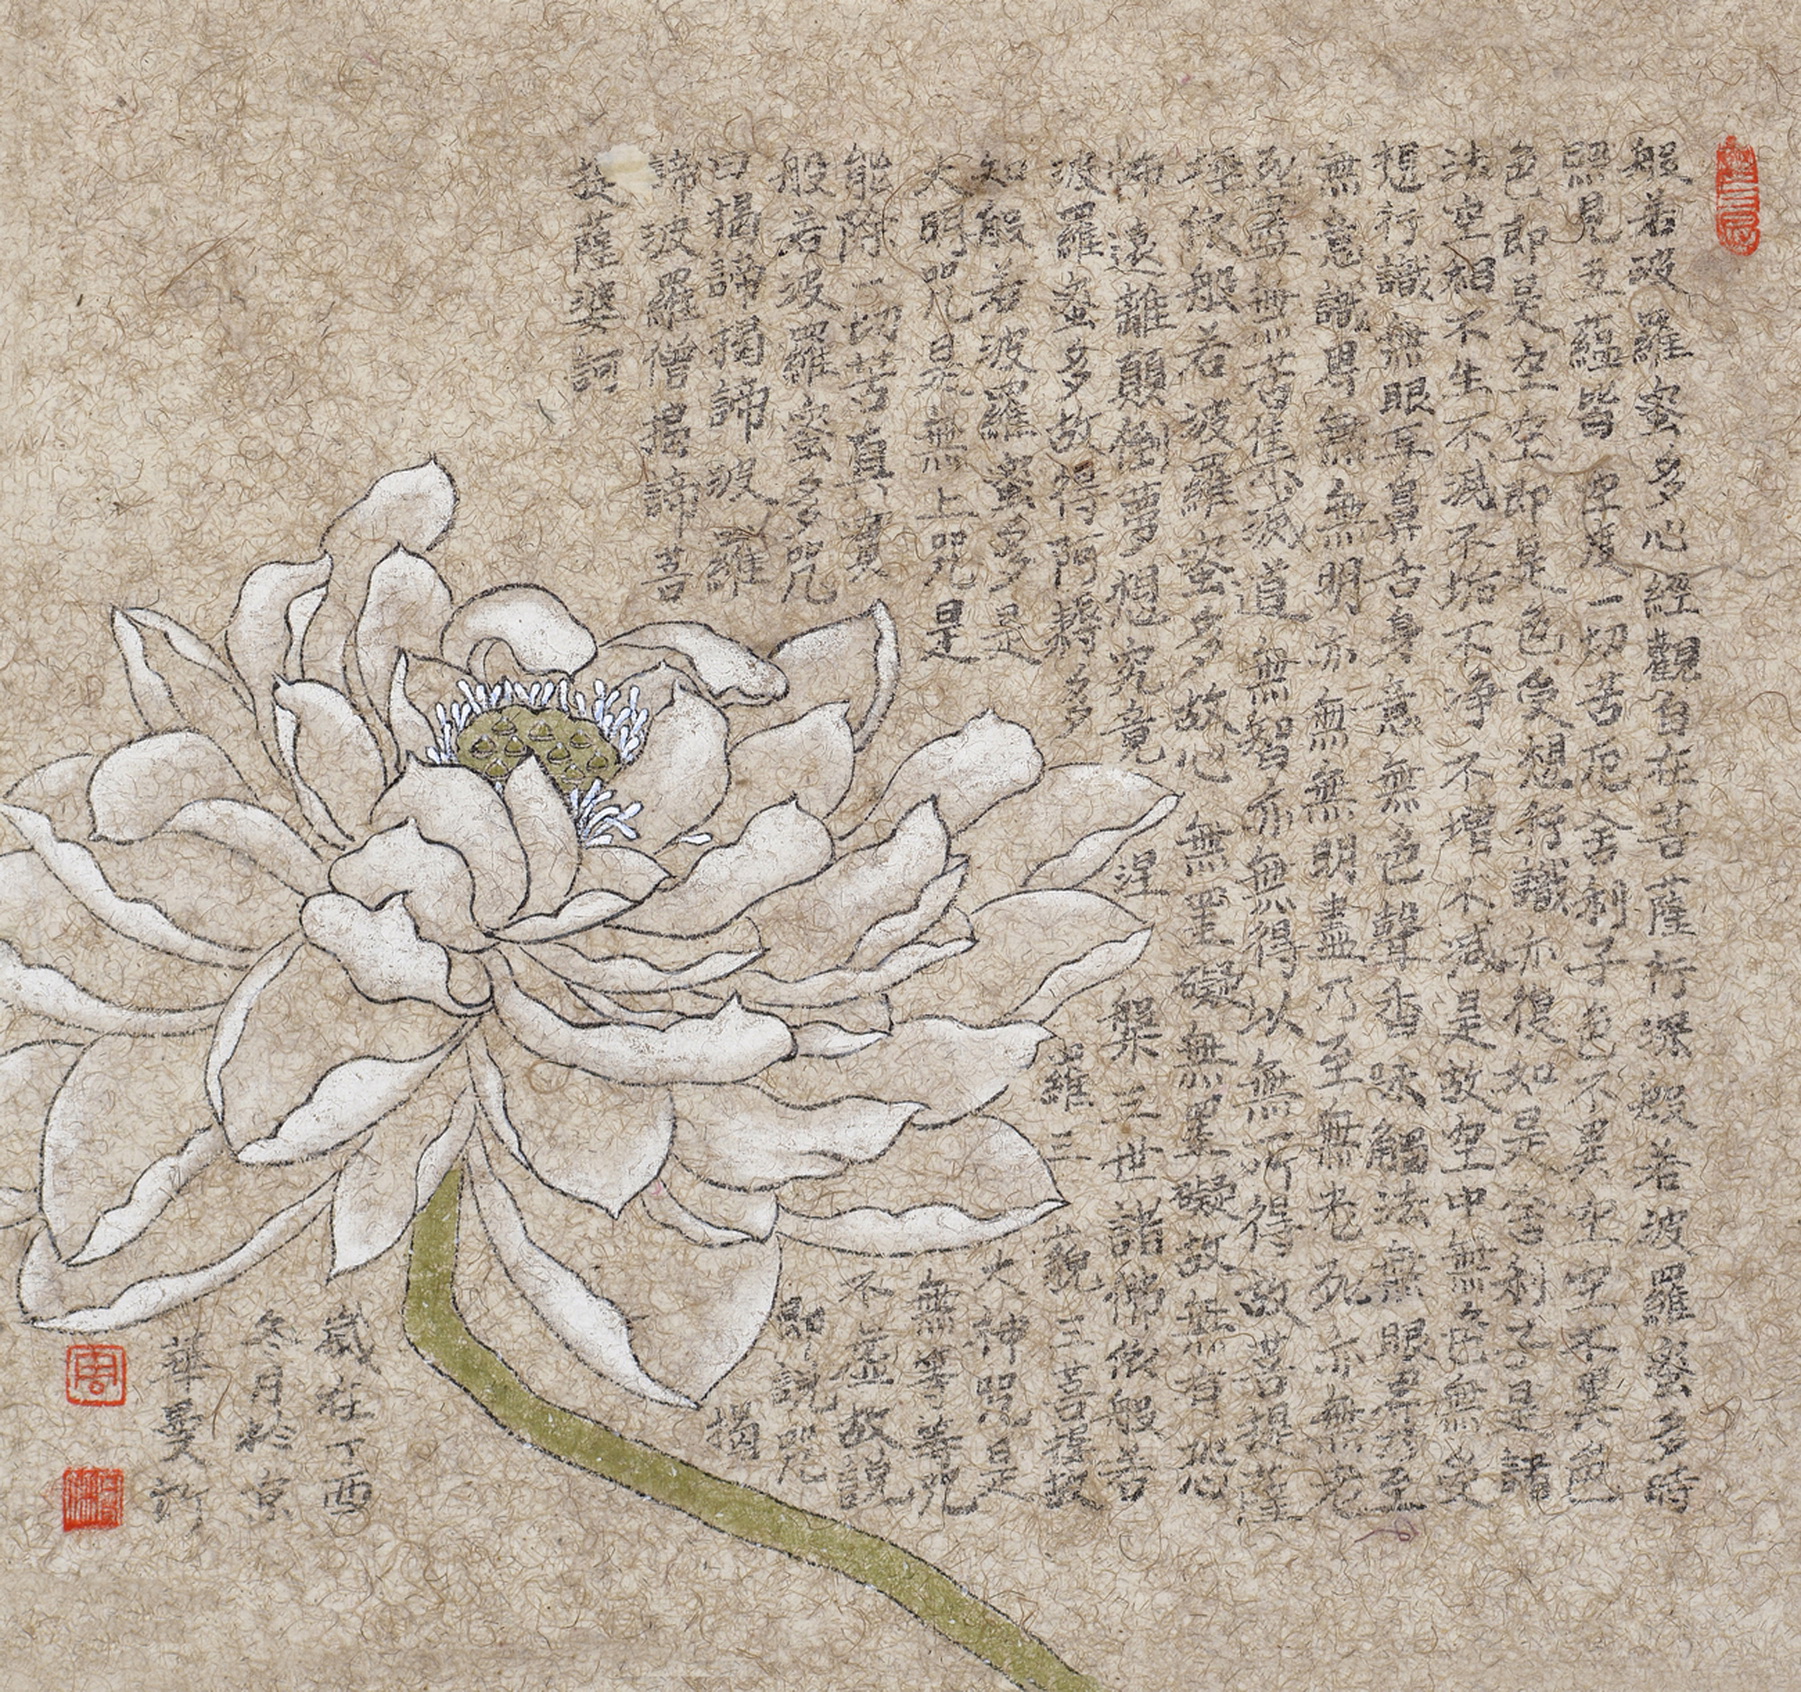 般若波羅蜜多心經觀自在菩薩行深般若波羅蜜多時
照見五蘊皆空度一切苦厄舍利子色不異空空不異色
色即是空空即是色受想行識亦復如是舍利子是諸
法空相不生不滅不垢不净不增不減是故空中無色無受
想行識無眼耳鼻舌身意無色聲香味觸法無眼界乃至
無意識界無無明亦無無明盡乃至無老死亦無老
死盡無苦集滅道無智亦無得以無所得故菩提薩
埵依般若波羅蜜多故心無罣礙無罣礙故無有恐
怖遠離顛倒夢想究竟涅槃三世諸佛依般若
波羅蜜多故得阿耨多羅三藐三菩提故
知般若波羅蜜多是大神咒是
大明咒是無上咒是無等等咒
能除一切苦真實不虛故說
般若波羅蜜多咒即說咒
曰揭諦揭諦波羅揭
諦波羅僧揭諦菩
提薩婆訶
歲在丁酉
冬月於京
華曼
周